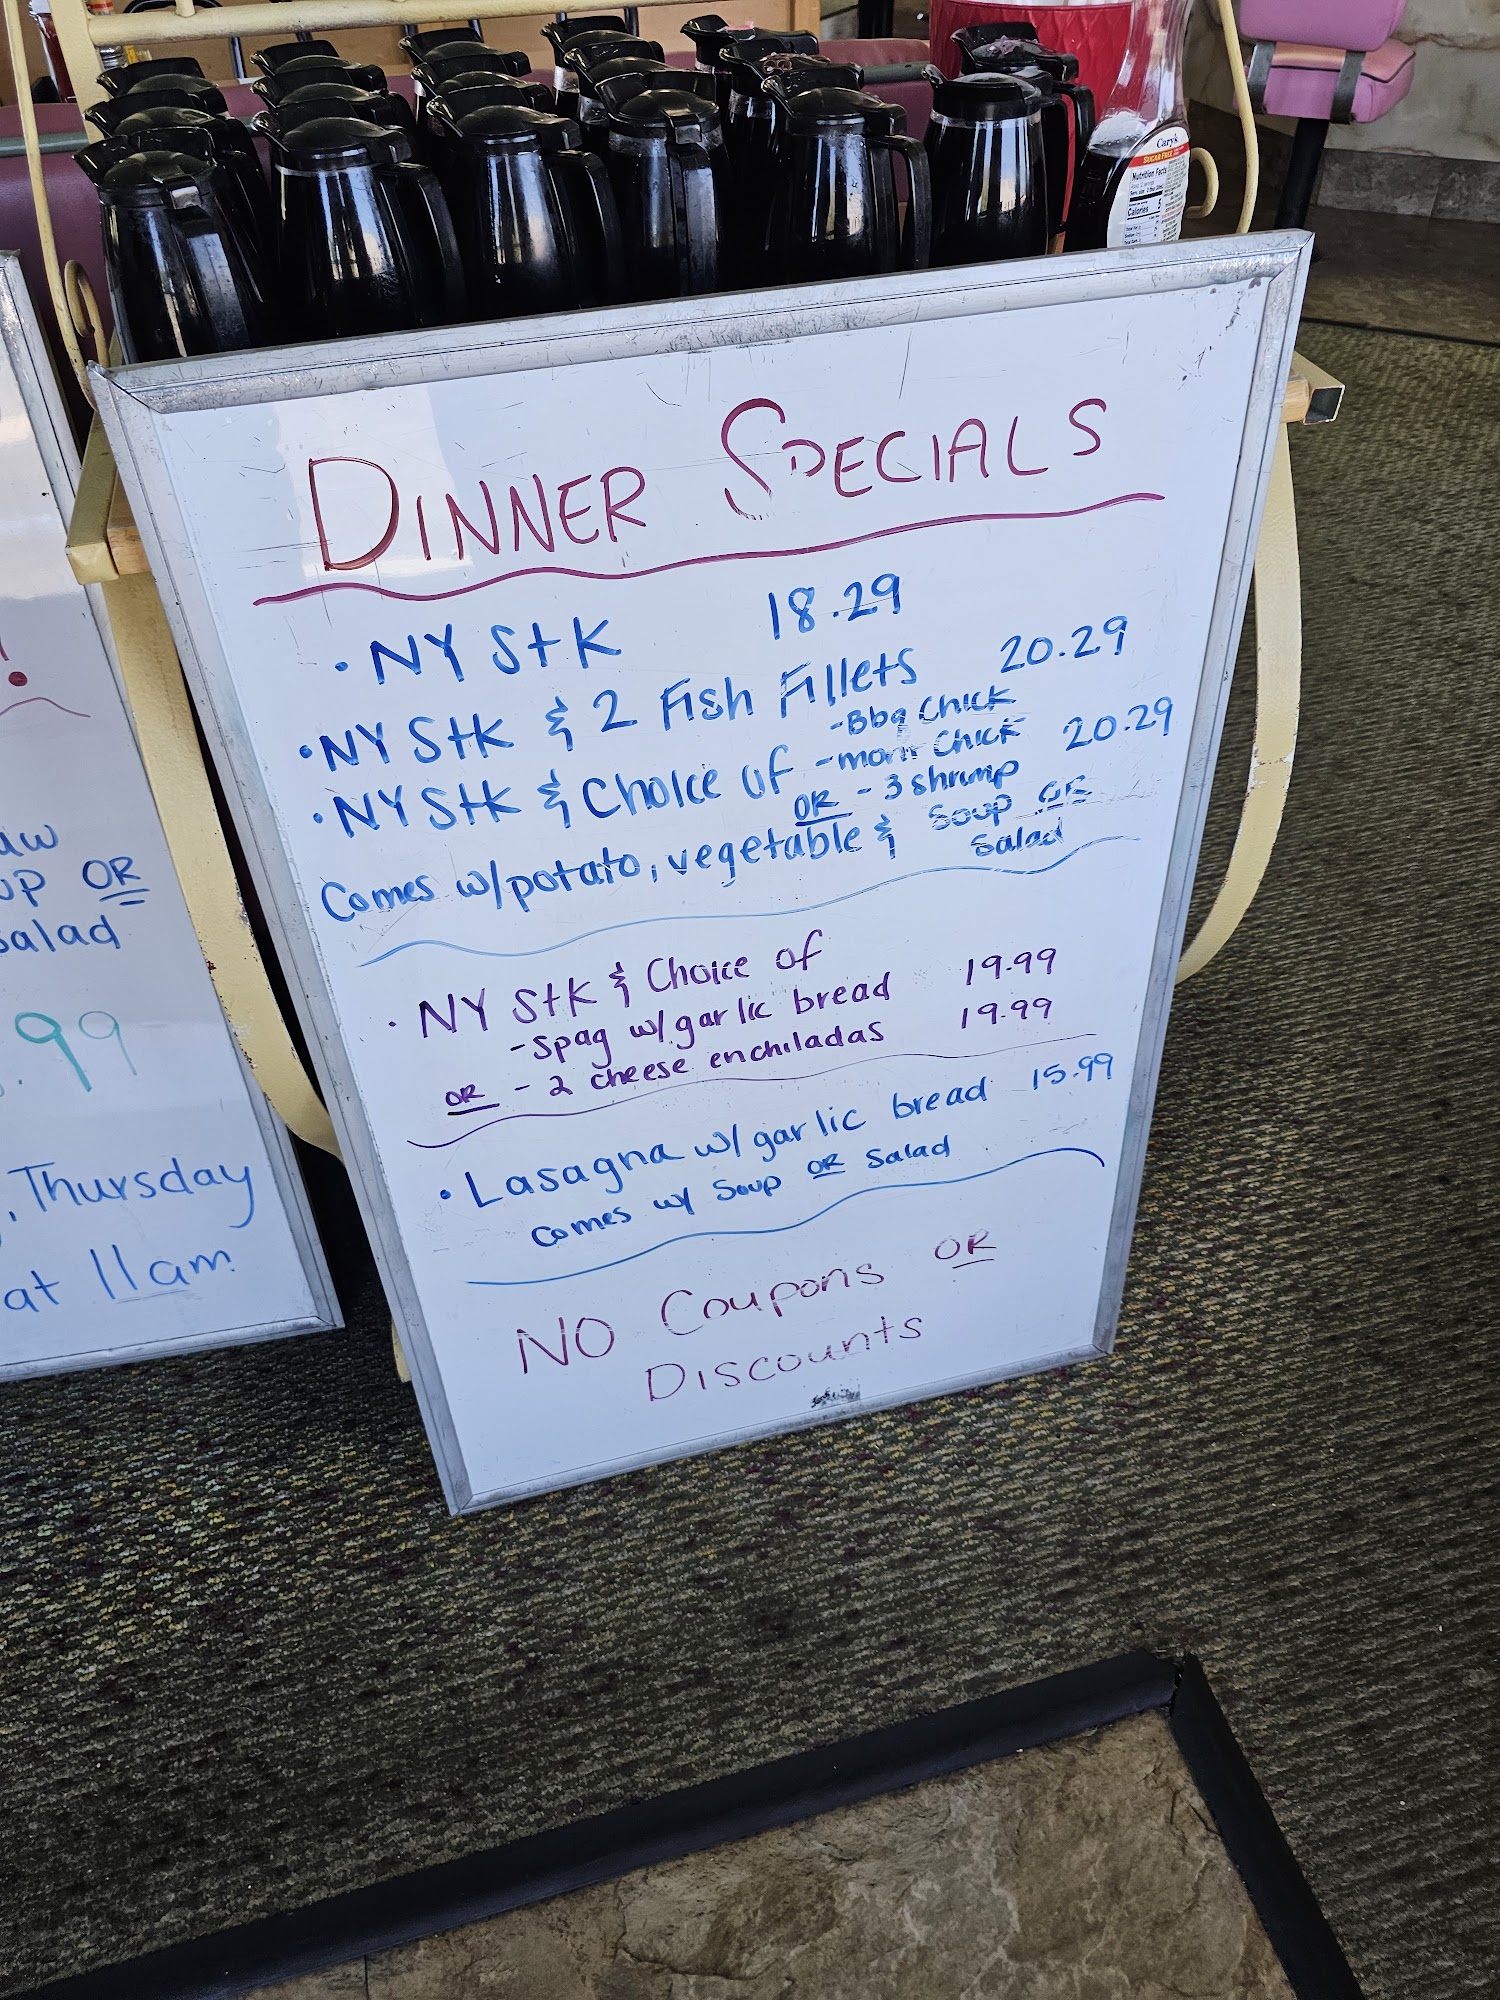 Cary's
SUGAR FREE
Nutrition Facts
Calories 5
DINNER SPECIALS
• NY Stk 18.29
• NY Stk & 2 Fish Fillets 20.29
• NY Stk & Choice of - Bbq Chick 20.29
- mont Chick
OR - 3 shrimp
Comes w/ potato, vegetable & Soup OR
Salad
• NY Stk & Choice of
- Spag w/ garlic bread 19.99
OR - 2 cheese enchiladas 19.99
• Lasagna w/ garlic bread 15.99
Comes w/ Soup OR Salad
NO Coupons OR
Discounts
!
OR
Salad
.99
, Thursday
at 11am